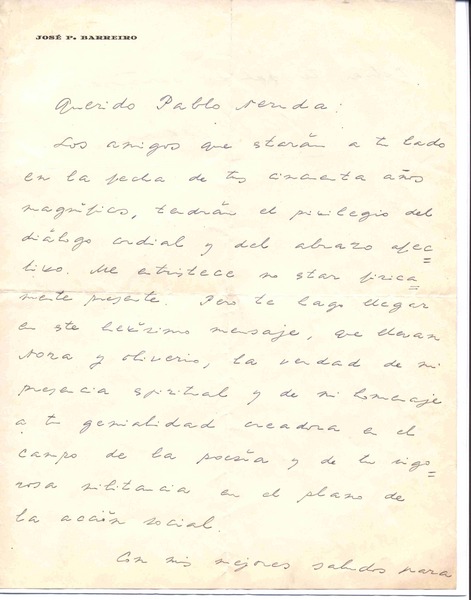 JOSÉ P. BARREIRO
Querido Pablo Neruda:
Los amigos que estarán a tu lado
en la fecha de tus cincuenta años
magníficos, tendrán el privilegio del
diálogo cordial y del abrazo afec=
tivo. Me entristece no estar física=
mente presente. Pero te hago llegar
en este brevísimo mensaje, que llevan
Nora y Oliverio, la verdad de mi
presencia espiritual y de mi homenaje
a tu genialidad creadora en el
campo de la poesía y de tu vigo=
rosa militancia en el plano de
la acción social.
Con mis mejores saludos para